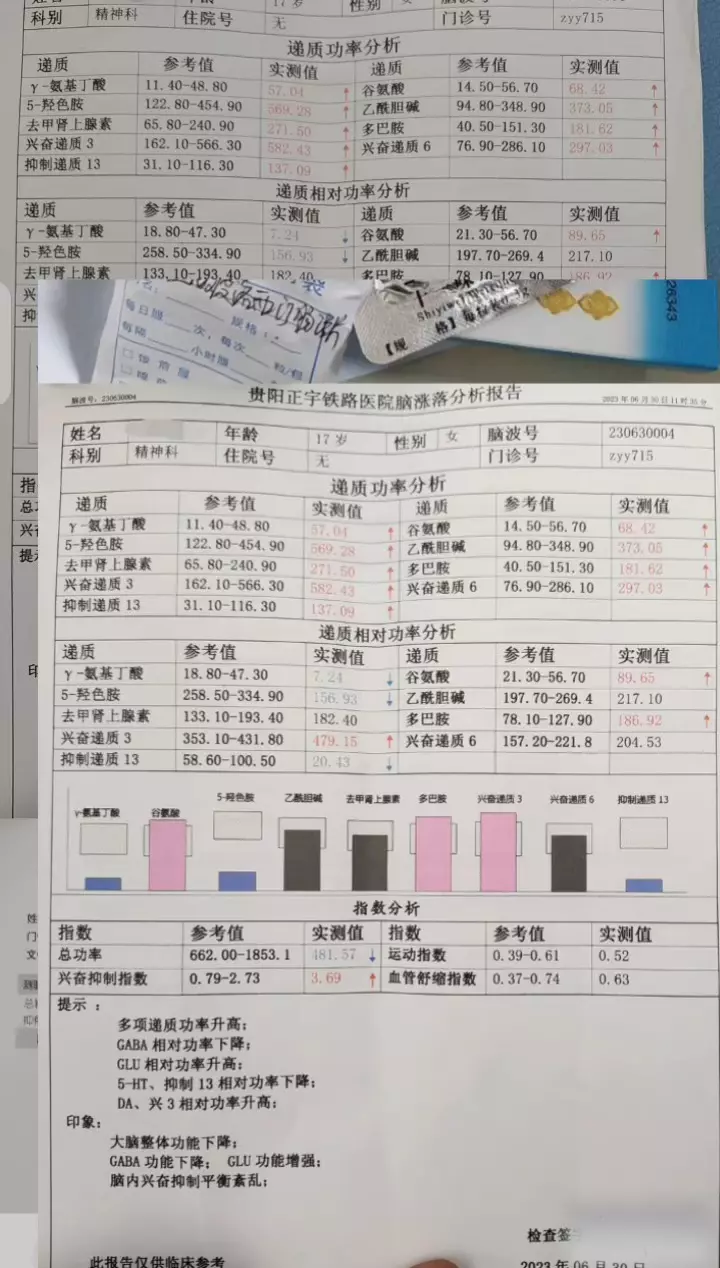 科别 精神科 住院号 无 门诊号 zyy715
递质功率分析
递质 参考值 实测值 递质 参考值 实测值
γ-氨基丁酸 11.40-48.80 57.04 ↑ 谷氨酸 14.50-56.70 68.42 ↑
5-羟色胺 122.80-454.90 569.28 ↑ 乙酰胆碱 94.80-348.90 373.05 ↑
去甲肾上腺素 65.80-240.90 271.50 ↑ 多巴胺 40.50-151.30 181.62 ↑
兴奋递质 3 162.10-566.30 582.43 ↑ 兴奋递质 6 76.90-286.10 297.03 ↑
抑制递质 13 31.10-116.30 137.09 ↑
递质相对功率分析
递质 参考值 实测值 递质 参考值 实测值
γ-氨基丁酸 18.80-47.30 7.24 ↓ 谷氨酸 21.30-56.70 89.65 ↑
5-羟色胺 258.50-334.90 156.93 ↓ 乙酰胆碱 197.70-269.4 217.10
去甲肾上腺素 133.10-193.40 182.40 多巴胺 78.10-127.90 186.92 ↑
规格:
每日服 次,每次 粒/包
每隔 小时服
【规 格】每粒装0.3g
26343
脑波号:230630004 贵阳正宇铁路医院脑涨落分析报告 2023 年 06 月 30 日 11 时 35 分
姓名 年龄 17 岁 性别 女 脑波号 230630004
科别 精神科 住院号 无 门诊号 zyy715
递质功率分析
递质 参考值 实测值 递质 参考值 实测值
γ-氨基丁酸 11.40-48.80 57.04 ↑ 谷氨酸 14.50-56.70 68.42 ↑
5-羟色胺 122.80-454.90 569.28 ↑ 乙酰胆碱 94.80-348.90 373.05 ↑
去甲肾上腺素 65.80-240.90 271.50 ↑ 多巴胺 40.50-151.30 181.62 ↑
兴奋递质 3 162.10-566.30 582.43 ↑ 兴奋递质 6 76.90-286.10 297.03 ↑
抑制递质 13 31.10-116.30 137.09 ↑
递质相对功率分析
递质 参考值 实测值 递质 参考值 实测值
γ-氨基丁酸 18.80-47.30 7.24 ↓ 谷氨酸 21.30-56.70 89.65 ↑
5-羟色胺 258.50-334.90 156.93 ↓ 乙酰胆碱 197.70-269.4 217.10
去甲肾上腺素 133.10-193.40 182.40 多巴胺 78.10-127.90 186.92 ↑
兴奋递质 3 353.10-431.80 479.15 ↑ 兴奋递质 6 157.20-221.8 204.53
抑制递质 13 58.60-100.50 20.43 ↓
γ-氨基丁酸 谷氨酸 5-羟色胺 乙酰胆碱 去甲肾上腺素 多巴胺 兴奋递质 3 兴奋递质 6 抑制递质 13
指数分析
指数 参考值 实测值 指数 参考值 实测值
总功率 662.00-1853.1 481.57 ↓ 运动指数 0.39-0.61 0.52
兴奋抑制指数 0.79-2.73 3.69 ↑ 血管舒缩指数 0.37-0.74 0.63
提示 :
多项递质功率升高;
GABA 相对功率下降;
GLU 相对功率升高;
5-HT、抑制 13 相对功率下降;
DA、兴 3 相对功率升高;
印象:
大脑整体功能下降;
GABA 功能下降; GLU 功能增强;
脑内兴奋抑制平衡紊乱;
检查签
此报告仅供临床参考 2023 年 06 月 30 日